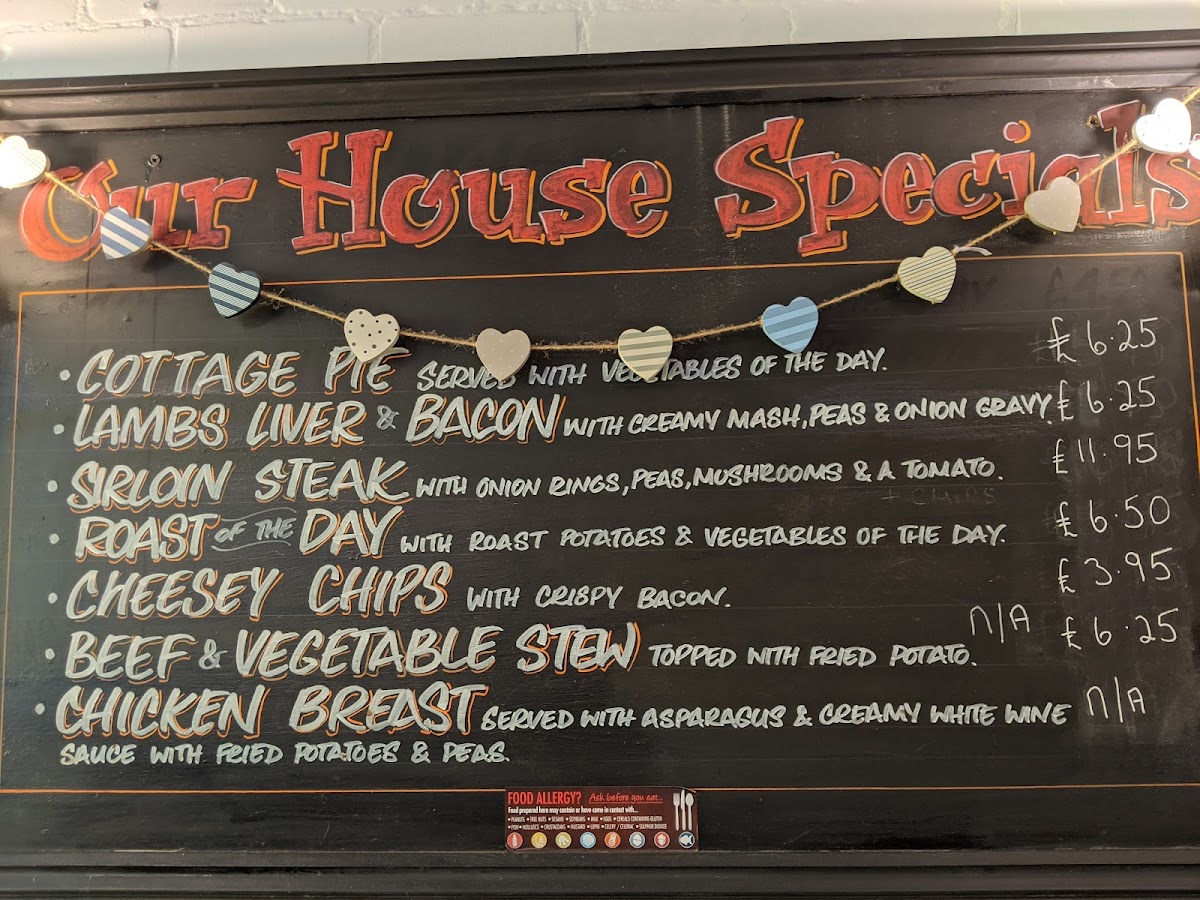 Our House Specials
• COTTAGE PIE SERVED WITH VEGETABLES OF THE DAY. £6.25
• LAMBS LIVER & BACON WITH CREAMY MASH, PEAS & ONION GRAVY. £6.25
• SIRLOIN STEAK WITH ONION RINGS, PEAS, MUSHROOMS & A TOMATO. £11.95
+ CHIPS
• ROAST OF THE DAY WITH ROAST POTATOES & VEGETABLES OF THE DAY. £6.50
• CHEESEY CHIPS WITH CRISPY BACON. £3.95
• BEEF & VEGETABLE STEW TOPPED WITH FRIED POTATO. N/A £6.25
• CHICKEN BREAST SERVED WITH ASPARAGUS & CREAMY WHITE WINE N/A
SAUCE WITH FRIED POTATOES & PEAS.
FOOD ALLERGY? Ask before you eat...
Food prepared here may contain or have come in contact with...
• PEANUTS • TREE NUTS • SESAME • SOYBEANS • MILK • EGGS • CEREALS CONTAINING GLUTEN
• FISH • MOLLUSCS • CRUSTACEANS • MUSTARD • LUPIN • CELERY / CELERIAC • SULPHUR DIOXIDE